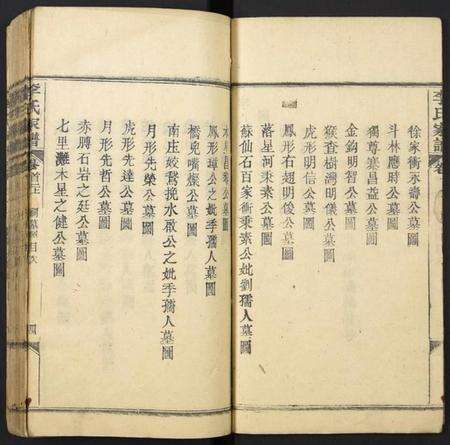 李氏家譜
徐家衝永壽公墓圖
斗林應時公墓圖
獨尊寨昌益公墓圖
金鈎明習公墓圖
猴查樹灣明儀公墓圖
虎形明信公墓圖
鳳形右翅明俊公墓圖
落星河秉素公墓圖
蘇仙石百家衝秉素公妣劉孺人墓圖
木星昌泰公墓圖
鳳形璋公之妣季孺人墓圖
橋兒嘴燦公墓圖
南庄姣鵞挽水啟公之妣季孺人墓圖
月形先榮公墓圖
虎形先達公墓圖
月形先哲公墓圖
赤膊石岩之廷公墓圖
七里灘木星之健公墓圖
李氏家譜
卷首
目次
四